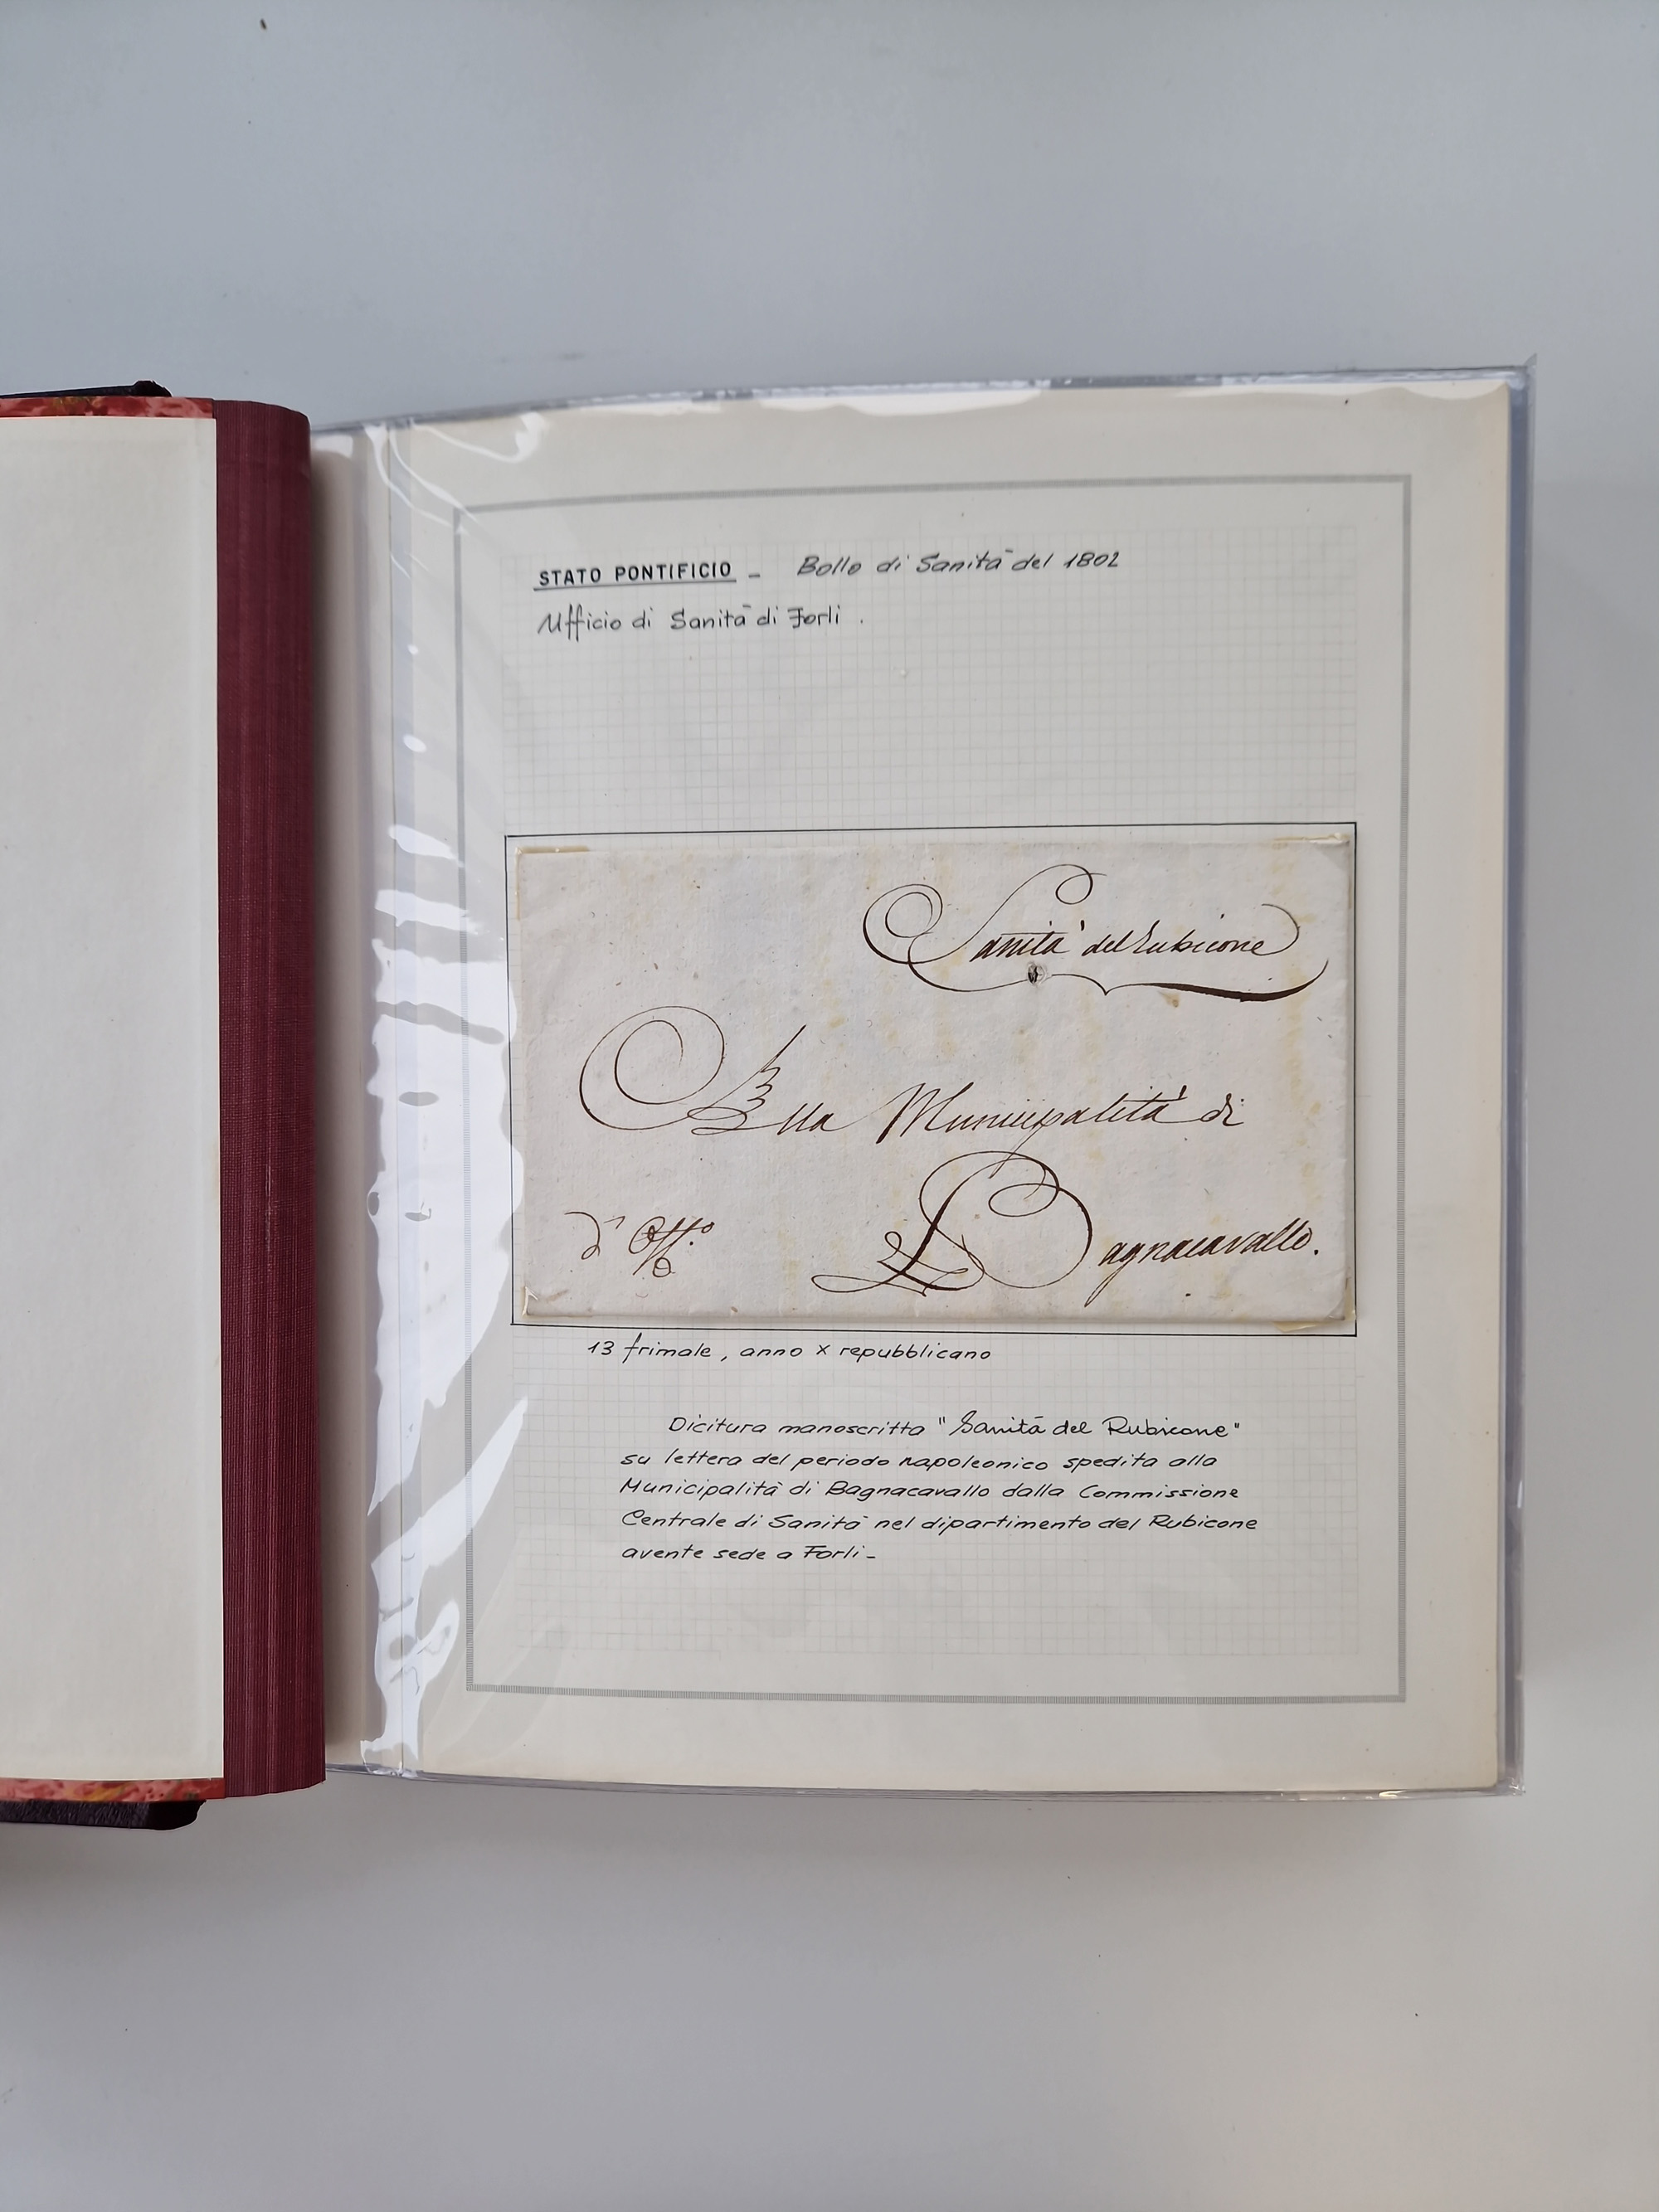 STATO PONTIFICIO - Bollo di Sanità del 1802
Ufficio di Sanità di Forli .
Sanità del Rubicone
Alla Municipalità di
d' Off.o Bagnacavallo.
13 frimale, anno X repubblicano
Dicitura manoscritta "Sanità del Rubicone"
su lettera del periodo napoleonico spedita alla
Municipalità di Bagnacavallo dalla Commissione
Centrale di Sanità nel dipartimento del Rubicone
avente sede a Forli -